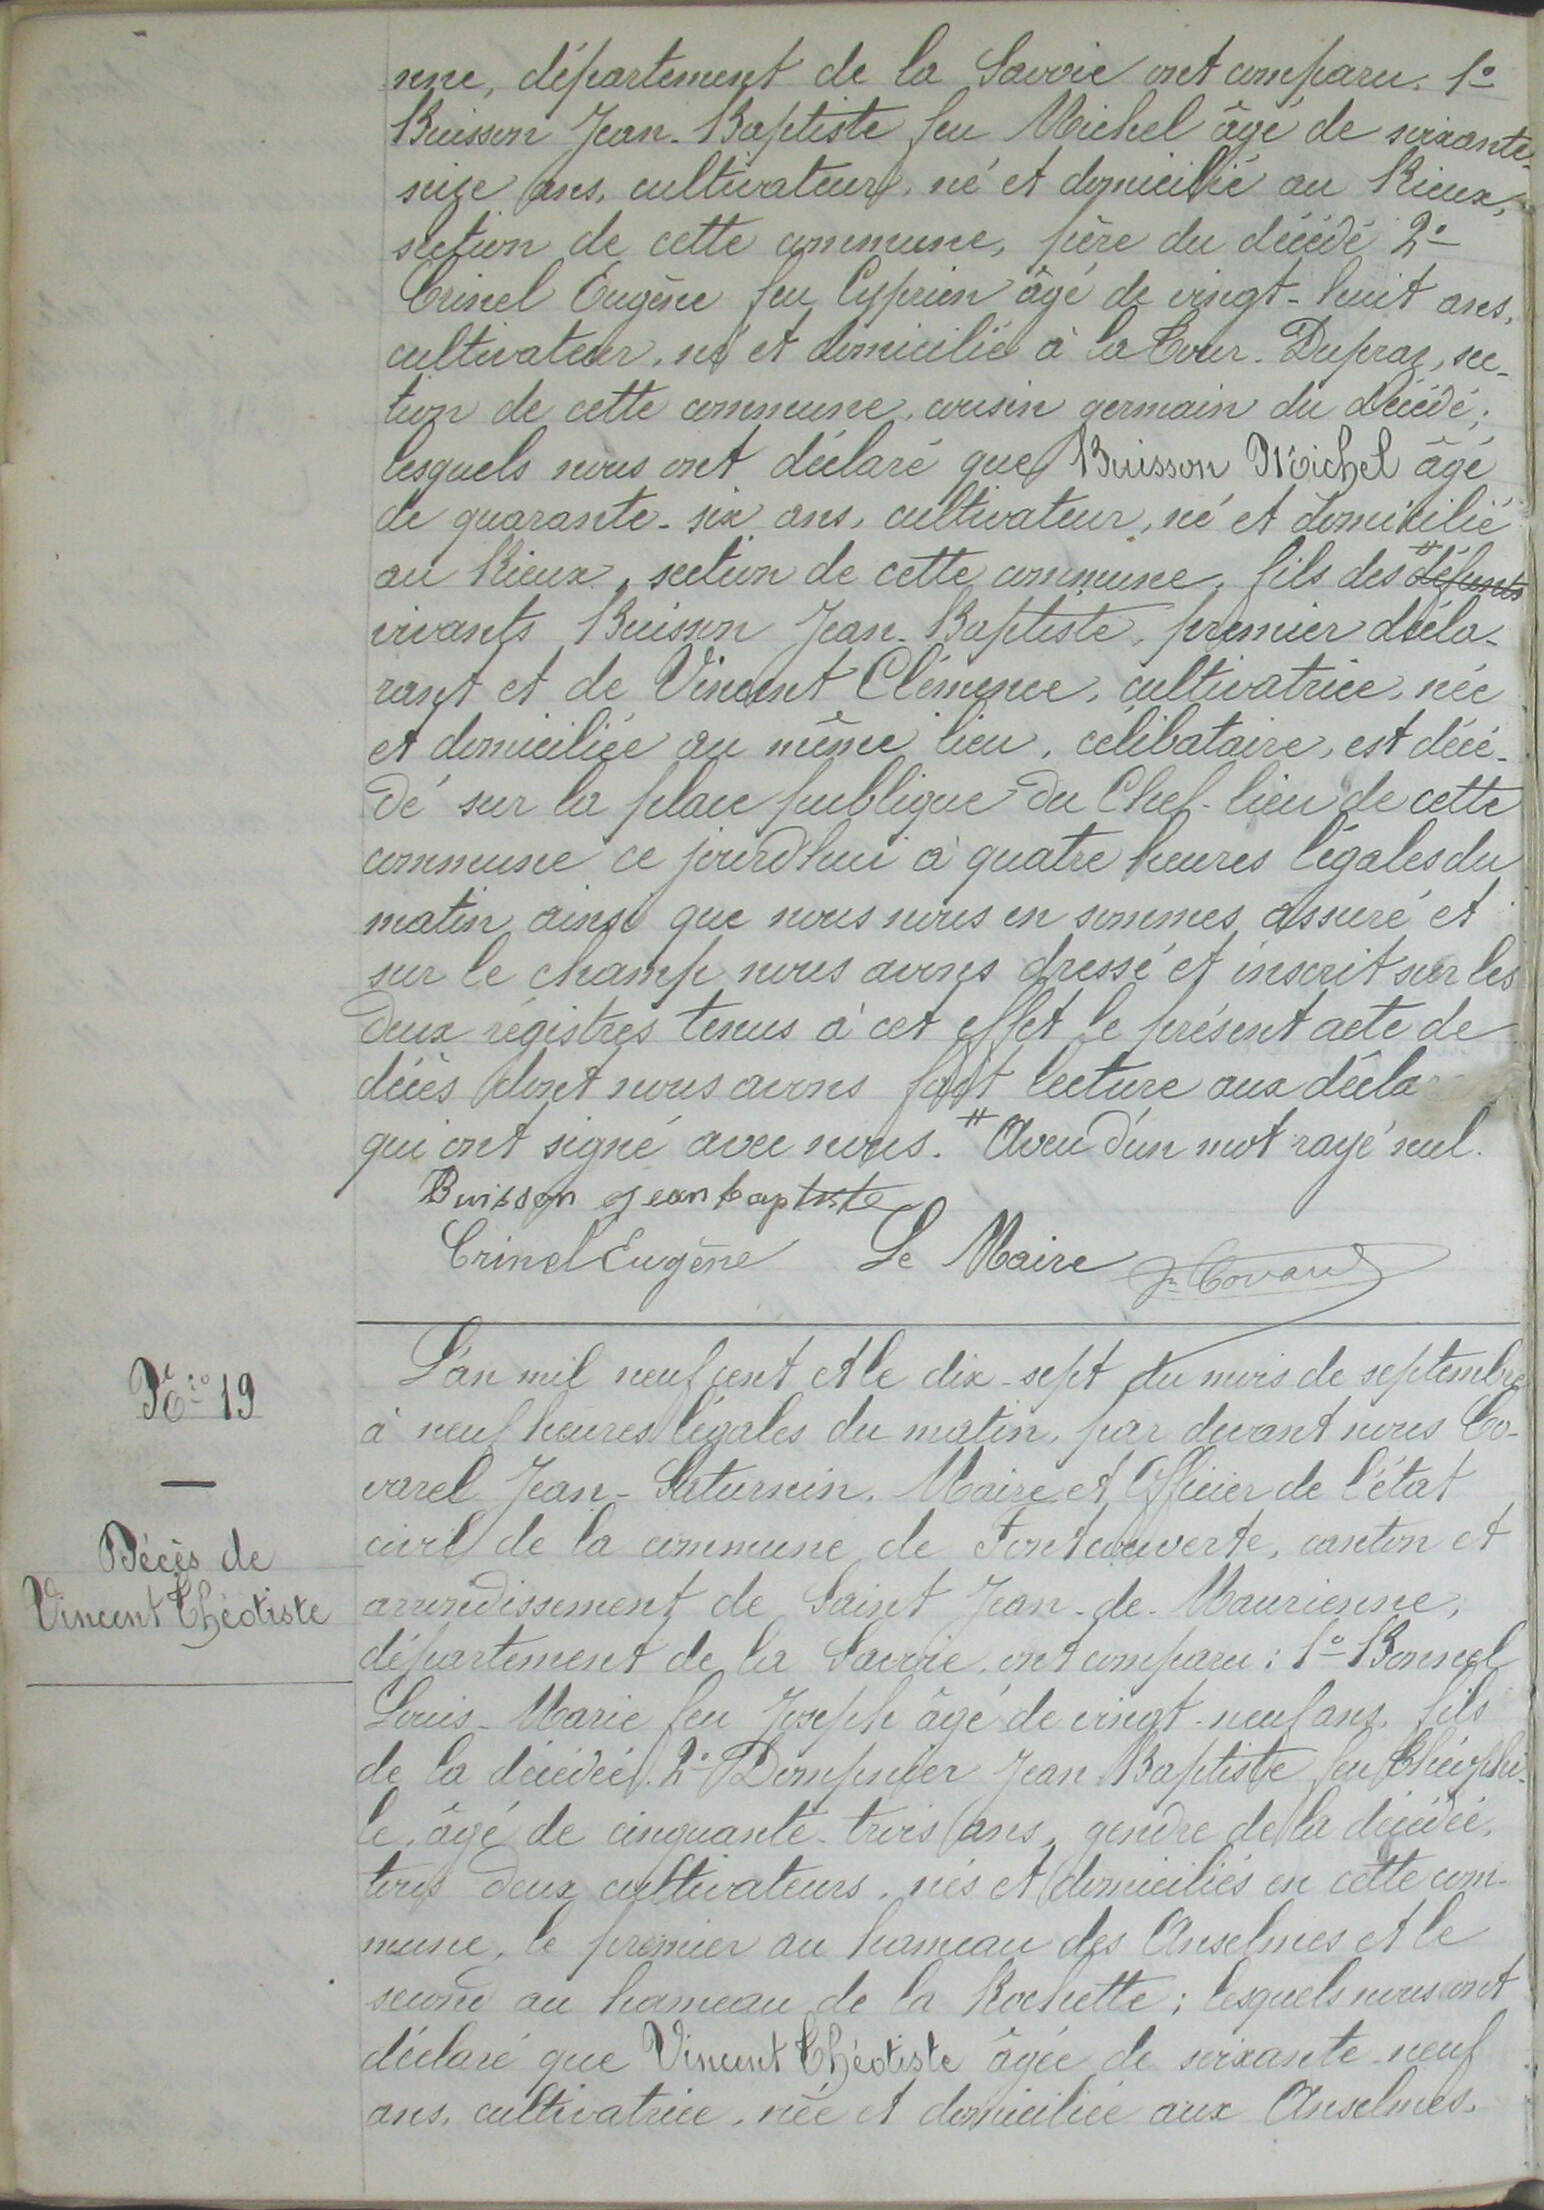 nne, département de la Savoie ont comparu. 1°
Buisson Jean-Baptiste feu Michel âgé de soixante-
seize ans, cultivateur, né et domicilié au Rieux,
section de cette commune, père du décédé 2°
Crinel Eugène feu Cyprien âgé de vingt-huit ans,
cultivateur, né et domicilié à la Cour-Dupraz, sec-
tion de cette commune, cousin germain du décédé;
lesquels nous ont déclaré que Buisson Michel âgé
de quarante-six ans, cultivateur, né et domicilié
au Rieux, section de cette commune, fils des # défunts
vivants Buisson Jean-Baptiste, premier décla-
rant et de Vincent Clémence, cultivatrice, née
et domiciliée au même lieu, célibataire, est décé-
dé sur la place publique du Chef-lieu de cette
commune ce jourd'hui à quatre heures légales du
matin ainsi que nous nous en sommes assuré et
sur le champ nous avons dressé et inscrit sur les
deux régistres tenus à cet effet le présent acte de
décès dont nous avons fait lecture aux décla
qui ont signé avec nous. # Aveu d'un mot rayé nul.
Buisson jean baptiste
Crinel Eugène Le Maire
L'an mil neuf cent et le dix-sept du mois de septembre
N° 19
à neuf heures légales du matin, par devant nous Co-
varel Jean-Saturnin, Maire et Officier de l'état
civil de la commune de Fontcouverte, canton et
Décès de
Vincent Théotiste
arrondissement de Saint Jean-de-Maurienne,
département de la Savoie, ont comparu: 1° Bonnel
Louis-Marie feu Joseph âgé de vingt-neuf ans, fils
de la décédée. 2° Dompnier Jean Baptiste feu Théophi-
le, âgé de cinquante-trois ans, gendre de la décédée,
tous deux cultivateurs, nés et domiciliés en cette com-
mune, le premier au hameau des Anselmes et le
second au hameau de la Rochette; lesquels nous ont
déclaré que Vincent Théotiste âgée de soixante-neuf
ans, cultivatrice, née et domiciliée aux Anselmes,